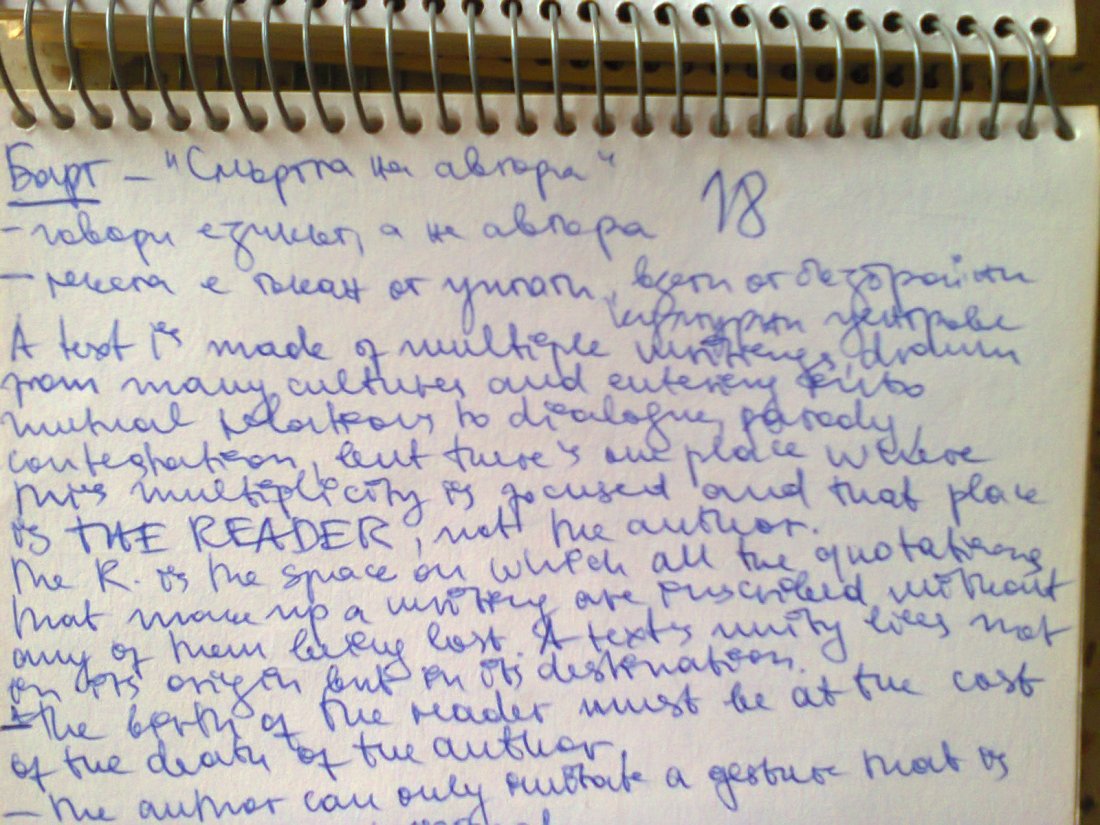 Барт – "Смъртта на автора"
18
– говори езикът, а не автора
– текста е тъкан от цитати, взети от безбройни
културни центрове
A text is made of multiple writings, drawn
from many cultures and entering into
mutual relations to dialogue, parody,
contestation, but there's one place where
this multiplicity is focused and that place
is THE READER, not the author.
The R. is the space on which all the quotations
that make up a writing are inscribed without
any of them being lost. A text's unity lies not
in its origin but in its destination.
– the birth of the reader must be at the cost
of the death of the author
– the author can only imitate a gesture that is